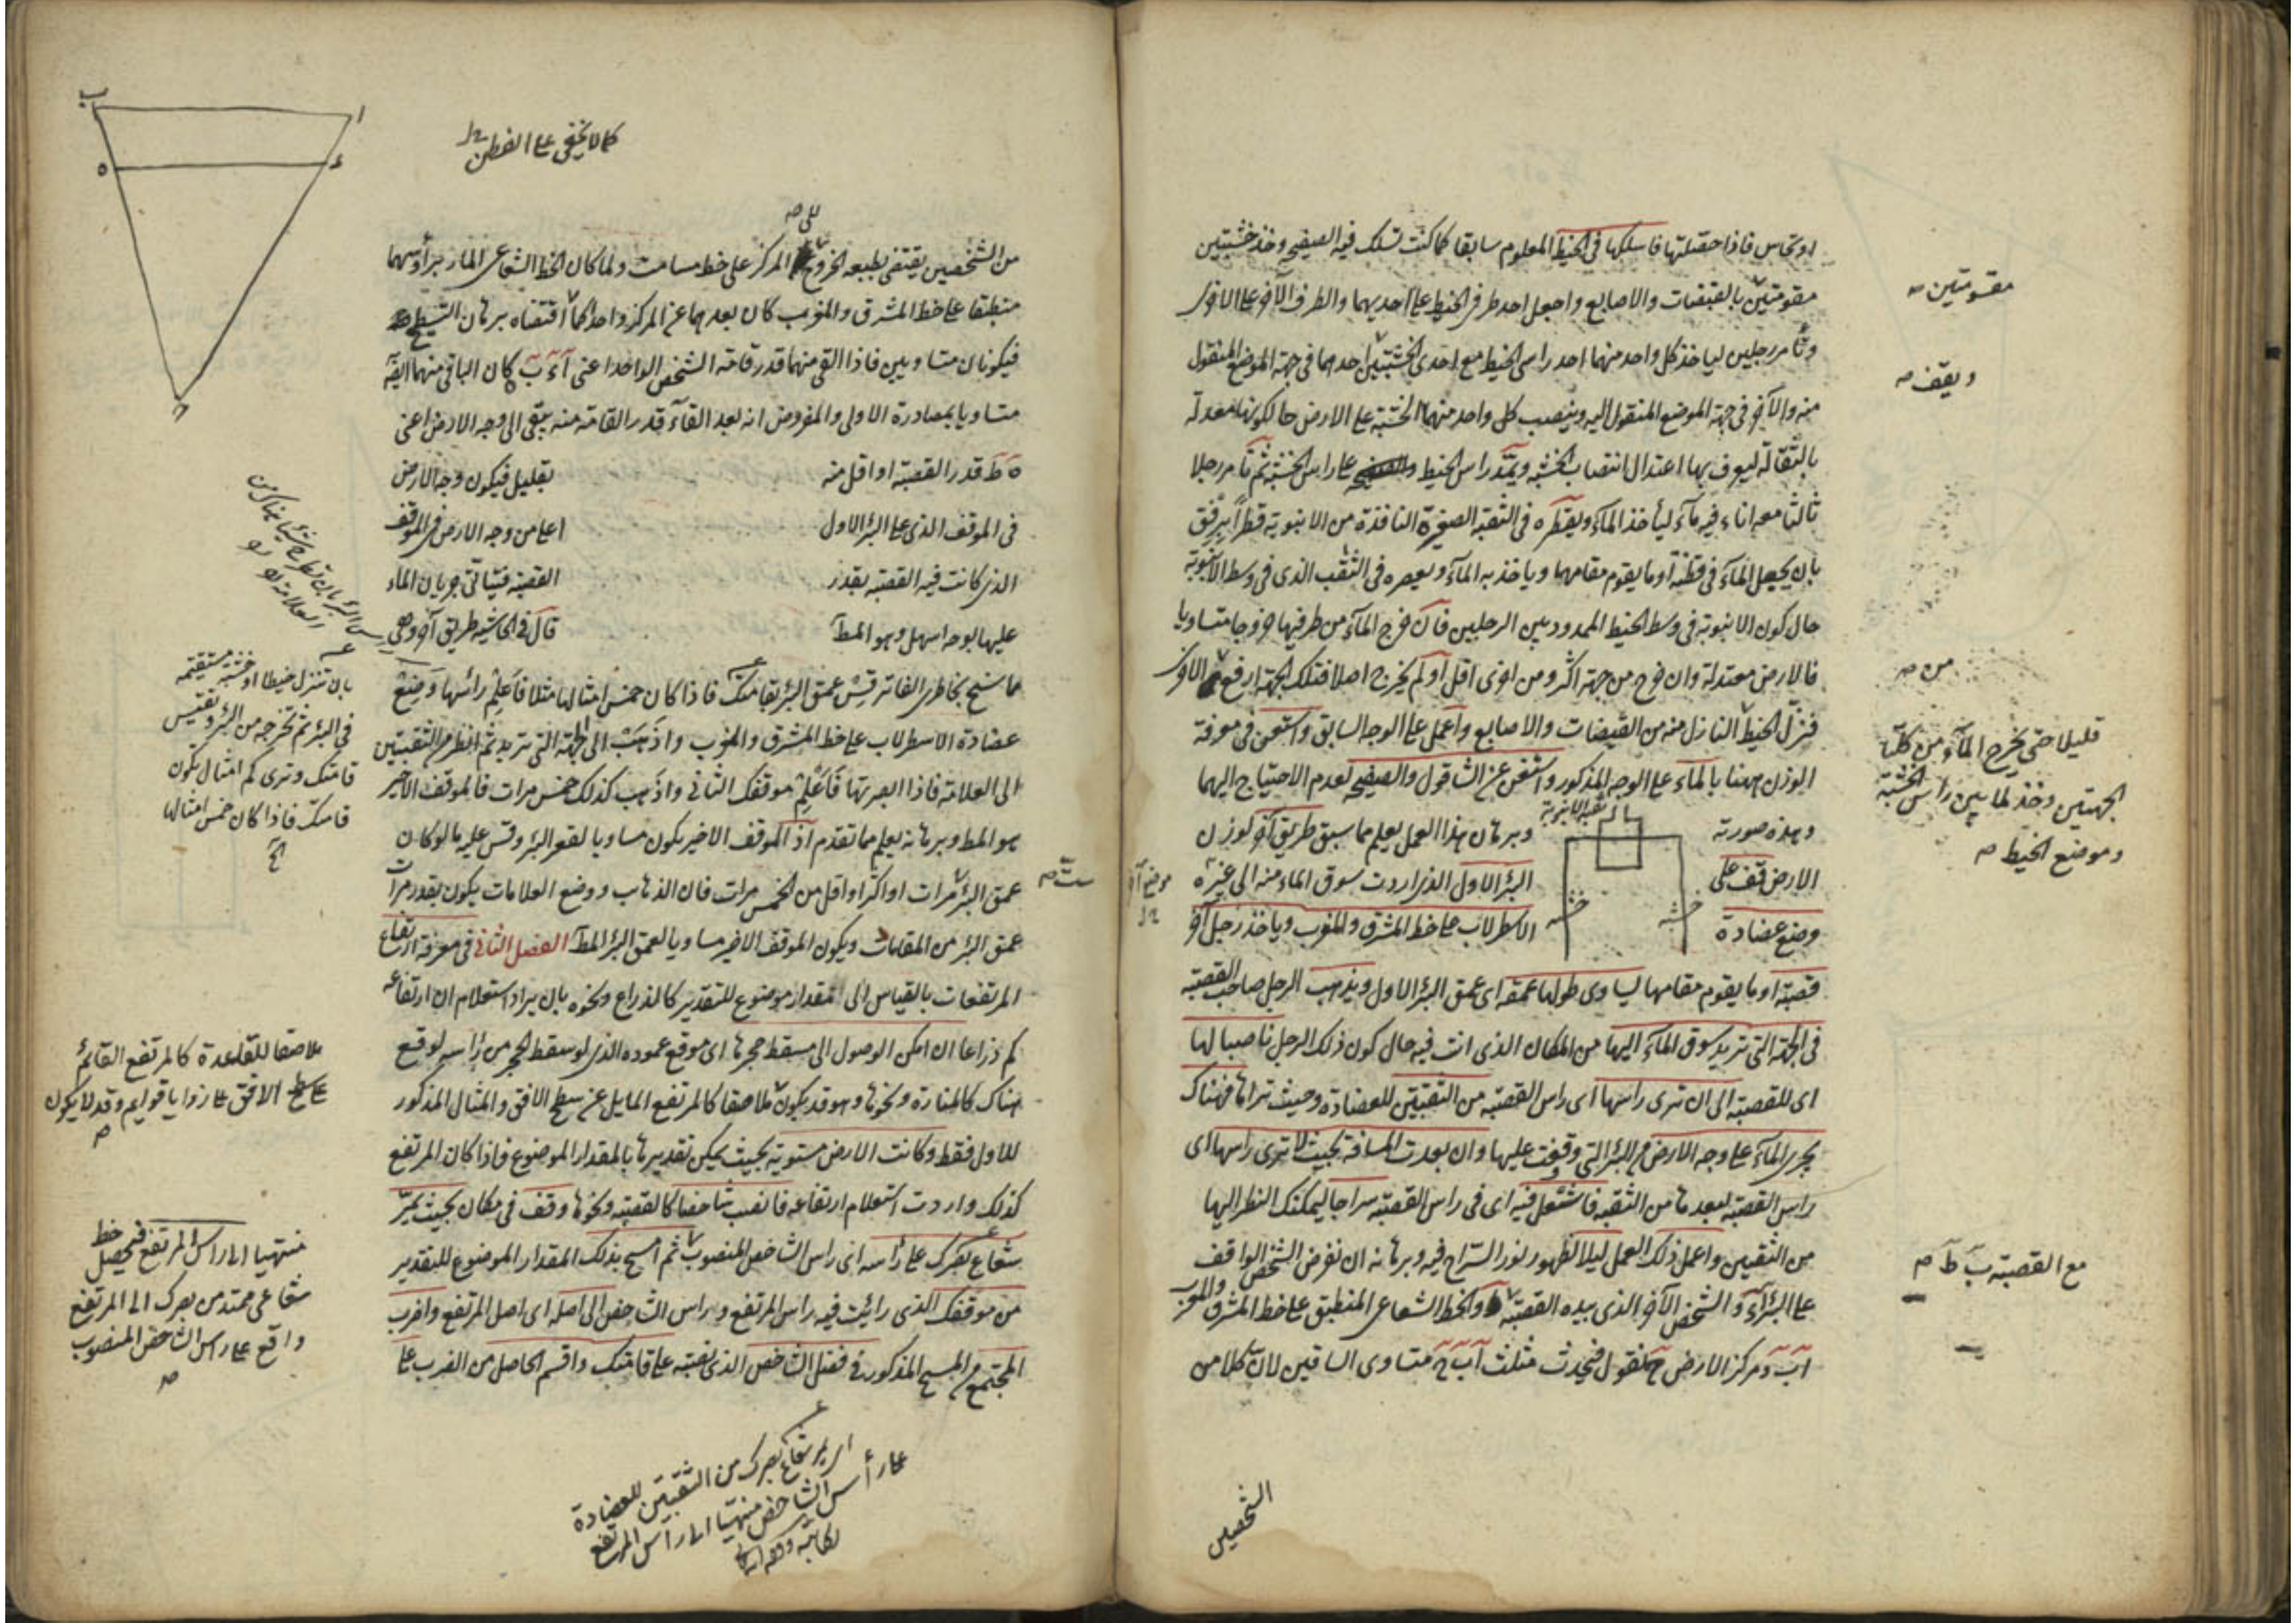 او نحاس فاذا حصلتها فاسلكها فى الخيط المعلوم سابقا كما كنت تسلك فيه الصفيحه وخذ خشبتين
مقومتين بالقبضات والاصابع واجعل احد طرفى الخيط على احديهما والطرف الآخر على الاخرى
وأمر رجلين لياخذ كل واحد منهما احد راسى الخيط مع احدى الخشبتين احدهما فى جهة الموضع المنقول
منه والآخر فى جهة الموضع المنقول اليه وينصب كل واحد منهما الخشبة على الارض حالكونها معدلة
بالثقالة ليعرف بها اعتدال انتصاب الخشبه ويمد راس الخيط على راس الخشبة ثم تأمر رجلا
ثالثا معه اناء فيه مآء ليأخذ المآء ويقطره فى الثقبة الصغيرة النافذة من الانبوبة قطرا برفق
بان يجعل المآء فى قطنة او ما يقوم مقامها وياخذ به المآء ويعصره فى الثقب الذى فى وسط الانبوبة
حال كون الانبوبة فى وسط الخيط الممدود بين الرجلين فان خرج المآء من طرفيها خروجا متساويا
فالارض معتدلة وان خرج من جهة اكثر ومن اخرى اقل او لم يخرج اصلا فتلك الجهة ارفع من الاخرى
فنزل الخيط النازل منه من القبضات والاصابع واعمل على الوجه السابق واستعن فى معرفة
الوزن ههنا بالماء على الوجه المذكور واستغن عن الشاقول والصفيحه لعدم الاحتياج اليهما
وهذه صورته
ثقبة الانبوبة
وبرهان هذا العمل يعلم مما سبق طريق آخر لوزن
الارض قف على
البئر الاول الذى اردت سوق الماء منه الى غيره
وضع عضادة
الاسطرلاب على خط المشرق والمغرب وياخذ رجل آخر
خشبه
خشبه
قصبة او ما يقوم مقامها ليساوى طولها عمقه اى عمق البئر الاول ويذهب الرجل صاحب القصبة
فى الجهة التى تريد سوق المآء اليها من المكان الذى انت فيه حال كون ذلك الرجل ناصبا لها
اى للقصبة الى ان ترى راسها اى راس القصبة من الثقبتين للعضادة وحيث تراها فهناك
يجرى المآء على وجه الارض من البئر التى وقفت عليها وان بعدت المسافة بحيث لا ترى راسها اى
راس القصبة لبعدها من الثقبة فاشتعل فيه اى فى راس القصبة سراجا ليمكنك النظر اليها
من الثقبين واعمل ذلك العمل ليلا لظهور نور السراج فيه وبرهانه ان نفرض الشخص الواقف
على البئر آء والشخص الآخر الذى بيده القصبة والخط الشعاعى المنطبق على خط المشرق والمغرب
آب ومركز الارض ح فنقول فيحدث مثلث آب ح متساوى الساقين لان كلا من
الشخصين
مقسومتين صه
ويقف صه
من صه
قليلا حتى يخرج المآء من كلتا
الجهتين وخذ لما بين راس الخشبة
وموضع الخيط صه
مع القصبة ب ط صه
كما لا يخفى على الفطن
من الشخصين يقتضى بطبعه الخروج المركز على خط مسامت ولما كان الخط الشعاعى المار برأسهما
منطبقا على خط المشرق والمغرب كان بعدهما عن المركز واحدا كما اقتضاه برهان التسطيح
فيكونان متساويين فاذا القى منهما قدر قامة الشخص الواحد اعنى آء ب ه كان الباقى منهما ايضا
متساويا بمصادرة الاولى والمفروض انه بعد القآء قدر القامة منه يبقى الى وجه الارض اعنى
ه ط قدر القصبة او اقل منه
بقليل فيكون وجه الارض
فى الموقف الذى على البئر الاول
اعلى من وجه الارض فى الموقف
الذى كانت فيه القصبة بقدر
القصبة فيتأتى جريان الماء
عليها بوجه اسهل وهو المط
قال فى الحاشيه طريق آخر وهى
مما سنح بخاطرى الفاتر قس عمق البئر بقامتك فاذا كان خمس امثالها مثلا فاعلم راسها وضع
عضادة الاسطرلاب على خط المشرق والمغرب واذهب الى الجهة التى تريد ثم انظر من الثقبتين
الى العلامة فاذا ابصرتها فاعلم موقفك الثانى واذهب كذلك خمس مرات فالموقف الاخير
هو المط وبرهانه يعلم مما تقدم اذ الموقف الاخير يكون مساويا لقعر البئر وقس عليه ما لو كان
عمق البئر مرات او اكثر او اقل من الخمس مرات فان الذهاب ووضع العلامات يكون بقدر مرات
عمق البئر من القامات ويكون الموقف الاخير مساويا لعمق البئر المط الفصل الثانى فى معرفة ارتفاع
المرتفعات بالقياس الى مقدار موضوع للتقدير كالذراع ونحوه بان يراد استعلام ان ارتفاعه
كم ذراعا ان امكن الوصول الى مسقط حجرها اى موقع عموده الذى لو سقط الحجر من رأسه لوقع
هناك كالمنارة ونحوها وهو قد يكون ملاصقا كالمرتفع المايل عن سطح الافق والمثال المذكور
للاول فقط وكانت الارض مستوية بحيث يمكن تقديرها بالمقدار الموضوع فاذا كان المرتفع
كذلك واردت استعلام ارتفاعه فانصب شاخصا كالقصبة ونحوها وقف فى مكان بحيث يمر
شعاع بصرك على رأسه اى راس الشاخص المنصوب ثم امسح بذلك المقدار الموضوع للتقدير
من موقفك الذى رايت فيه راس المرتفع وراس الشاخص الى اصله اى اصل المرتفع واضرب
المجتمع من المسح المذكور فى فضل الشاخص الذى نصبته على قامتك واقسم الحاصل من الضرب على
ب
ا
ه
ء
ح
بان تنزل خيطا او خشبة مستقيمه
فى البئر ثم تخرجه من البئر وتقيس
قامتك وترى كم امثال يكون
قامتك فاذا كان خمس امثالها
الخ
ملاصقا للقاعدة كالمرتفع القائم
على سطح الافق على زوايا قوايم وقد لا يكون
صه
منتهيا الى راس المرتفع فيحصل خط
شعاعى ممتد من بصرك الى المرتفع
واقع على راس الشاخص المنصوب
صه
اى يمر شعاع بصرك من الثقبتين للعضادة
على رأس الشاخص منتهيا الى راس المرتفع
لكاتبه